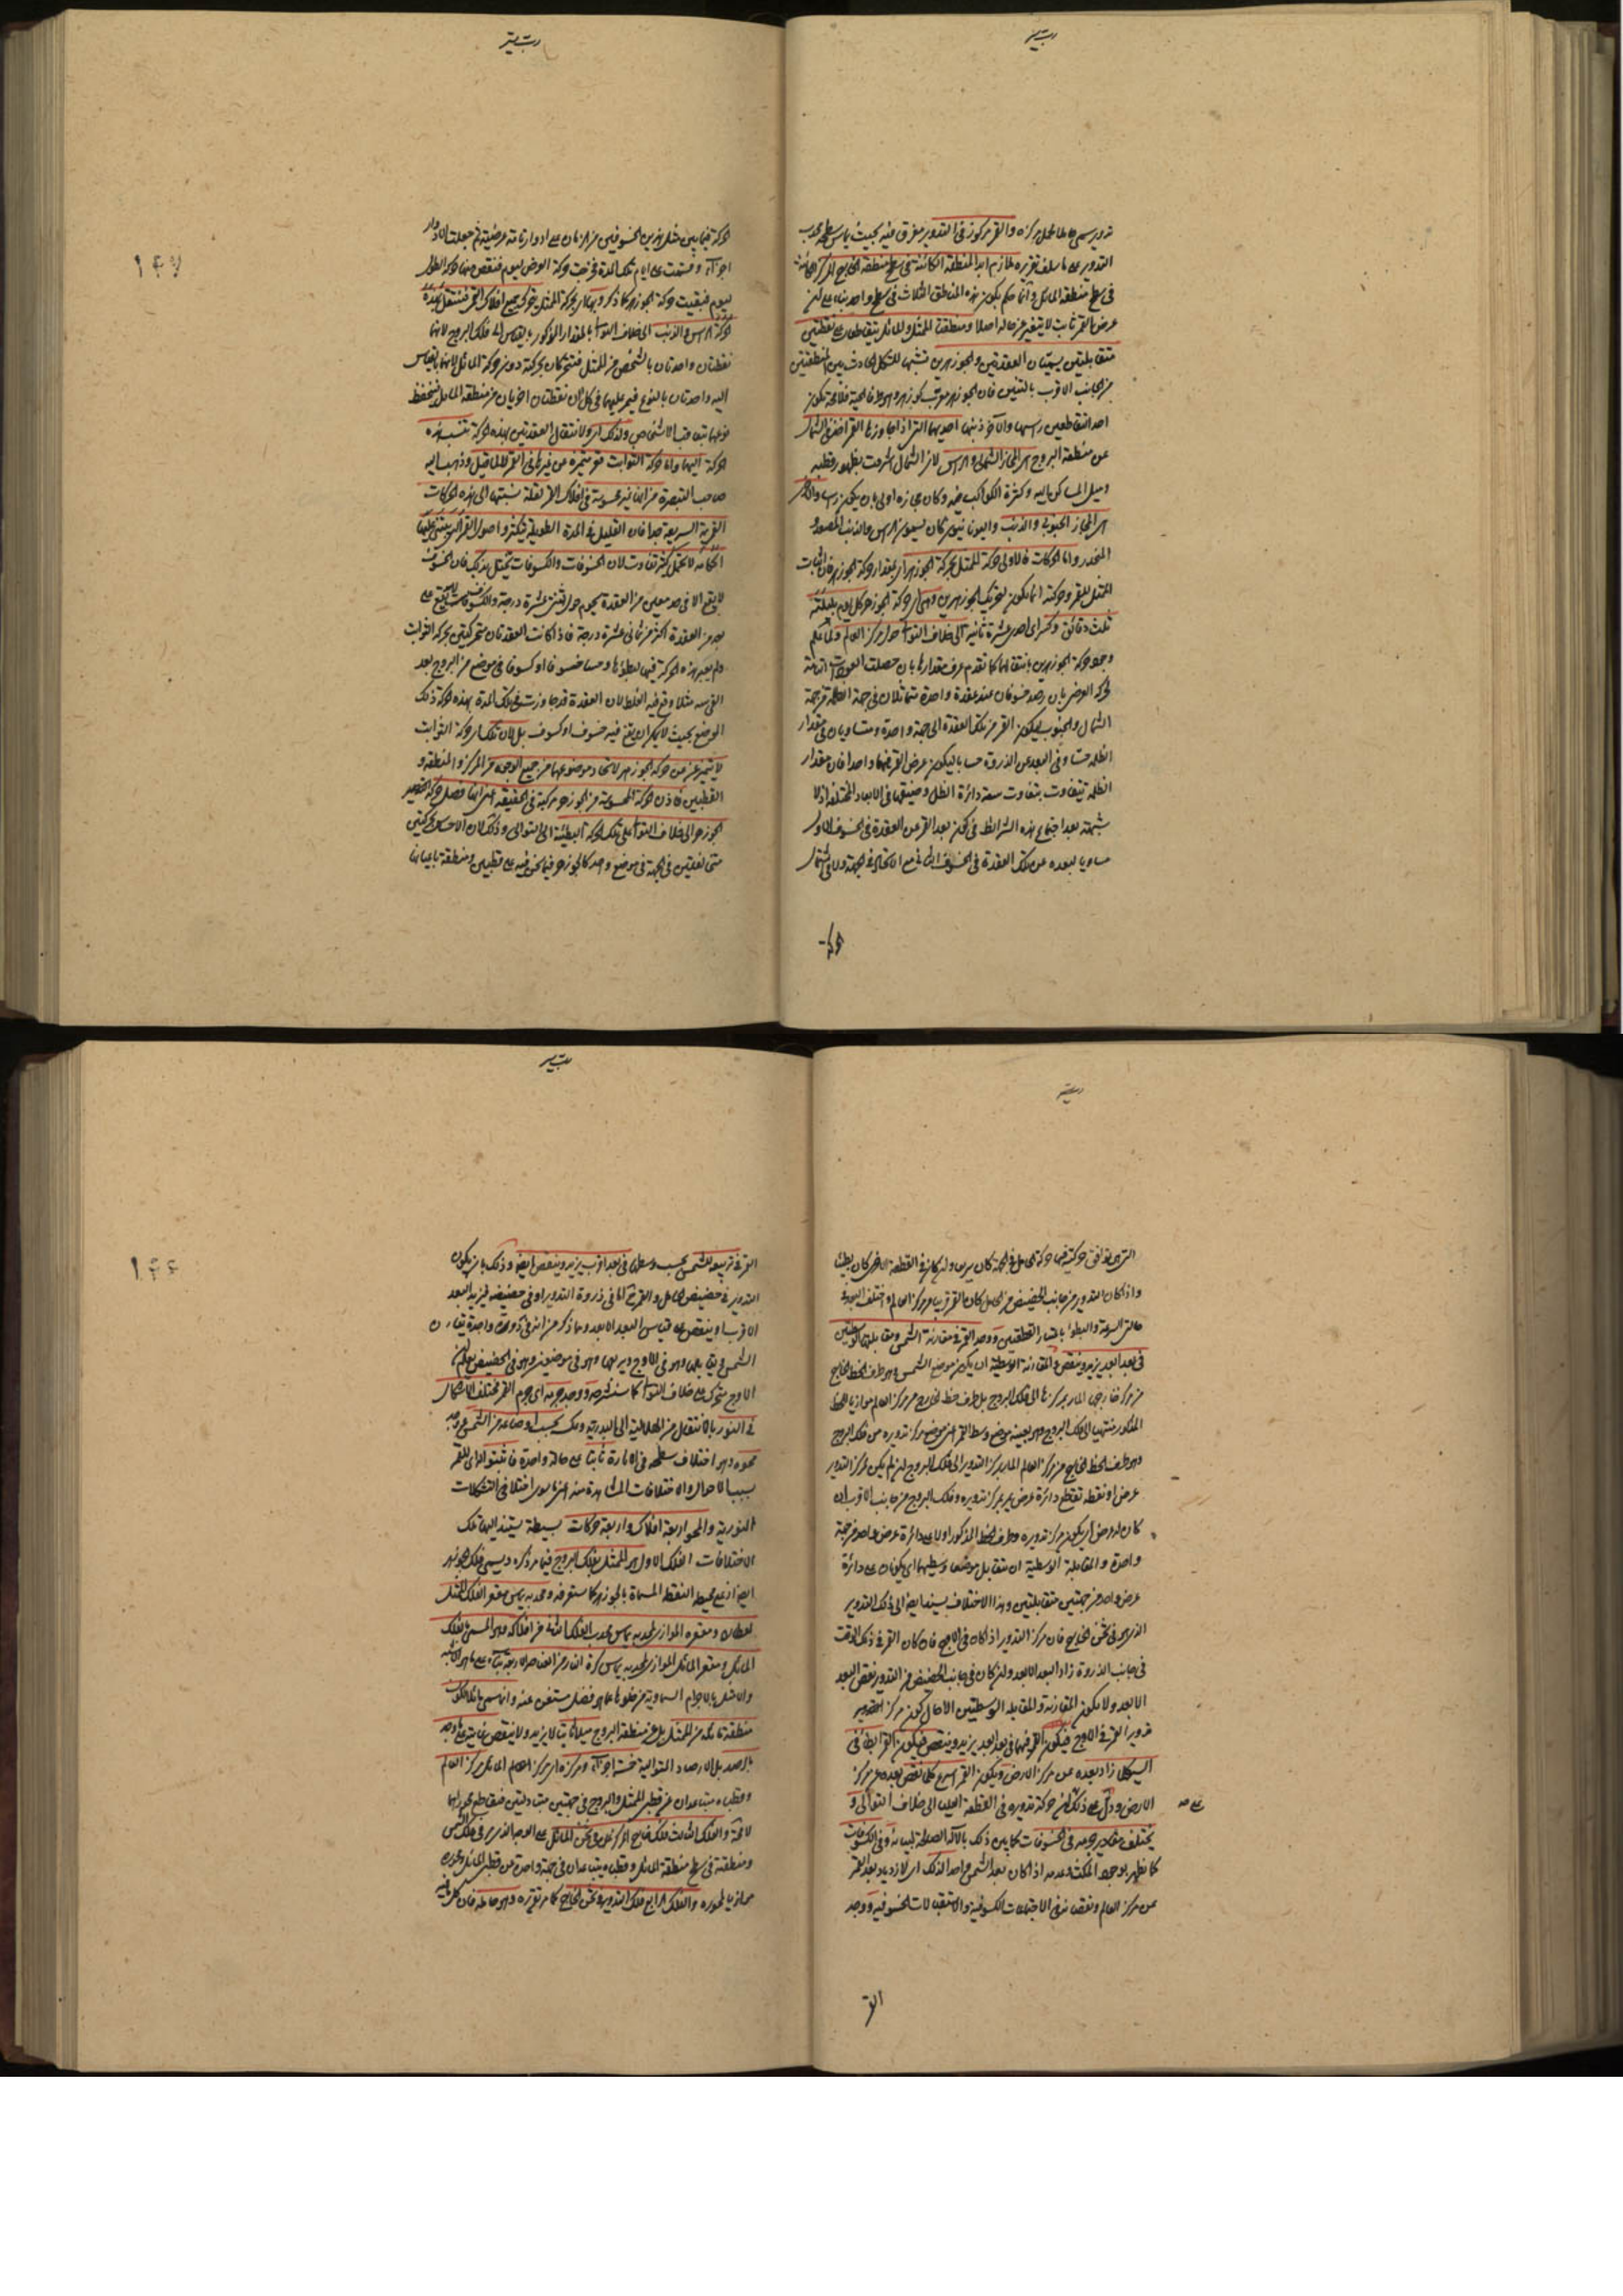 تدويره يسمى حاملا لحمله مركزه والقمر مركوز في التدوير مغرق فيه بحيث يماس سطحه محدب
التدوير على ما سلف تقريره ملازم ابدا لمنطقته الكائنة في سطح منطقة الخارج المركز الكائنة
في سطح منطقة المائل وانما حكم بكون هذه المناطق الثلاث في سطح واحد بناء على ان
عرض القمر ثابت لا يتغير عن حاله اصلا ومنطقة الممثل والمائل يتقاطعان على نقطتين
متقابلتين يسميان العقدتين والجوزهرين تشبيها للشكل الحادث بين المنطقتين
من الجانب الاقرب بالتنين فان الجوزهر معرب كوزهر وهو طرفا الحية
احد التقاطعين راسها والآخر ذنبها احديهما التي اذا جاوزها القمر اخذ في الشمال
عن منطقة البروج هي المجاز الشمالي والراس لان الشمال اشرف بظهور قطبه
وميل المساكن اليه وكثرة الكواكب فيه وكان مجازه اولى بان يكون راسا والاخرى
هي المجاز الجنوبي والذنب واليونانيون كان يسمون الراس والذنب المصعد و
المنحدر واما الحركات فالاولى حركة الممثل بحركة الجوزهر اي بمقدار حركة الجوزهر
الممثل للقمر وحركته انما يكون لتحريك الجوزهرين وهي اي حركة الجوزهر كل يوم بليلته
ثلث دقائق وكسر اي احدى عشرة ثانية الى خلاف التوالي حول مركز العالم
وجود حركة الجوزهرين بانتقالهما كما تقدم عرف مقدارها بان حصلت العودات التامة
لحركة العرض بان رصد خسوفان عند عقدة واحدة متماثلان في جهة الظلمة من جهة
الشمال والجنوب ليكون القمر من تلك العقدة الى جهة واحدة ومتساويان في مقدار
الظلمة متساوي البعد عن الذروة حسابا ليكون عرض القمر فيهما واحدا فان مقدار
الظلمة يتفاوت بتفاوت سعة دائرة الظل وضيقها في الابعاد المختلفة اذ لا
شبهة بعد اجتماع هذه الشرائط في كون بعد القمر عن العقدة في الخسوف الاول
مساويا لبعده عن تلك العقدة في الخسوف الثاني مع الاتحاد في الجهة
الحركة
الحركة فيما بين مثل هذين الخسوفين من الزمان على ادوار تامة عرضية ثم جعلت الادوار
اجزاء وقسمت على ايام تلك المدة فخرجت حركة العرض ليوم فنقص منها حركة الطول
ليوم فبقيت حركة الجوزهر كما ذكر وبها اي بحركة الممثل يتحرك جميع افلاك القمر فتنتقل بهذه
الحركة الراس والذنب الى خلاف التوالي بالمقدار المذكور بالقياس الى فلك البروج لانهما
نقطتان واحدتان بالشخص من الممثل فتتحركان بحركته دون حركة المائل لانهما بالقياس
اليه واحدتان بالنوع فيمر عليهما في كل ان نقطتان اخريان من منطقة المائل فتنحفظ
نوعهما بتعاقب الاشخاص ولذلك اي ولانتقال العقدتين بهذه الحركة تنسب هذه
الحركة اليهما واما حركة الثوابت فغير متميزة عن غيرها في القمر لما قيل وذهب اليه
صاحب التبصرة من انها غير محسوسة في افلاك القمر لقلة نسبتها الى هذه الحركات
القريبة السريعة جدا فان القليل في المدة الطويلة يتكثر واصول القمر التي يبتنى عليها
احكامه لا يحتمل كثير تفاوت لان الخسوفات والكسوفات يختل بذلك فان الخسوف
لا يقع الا في حد معين من العقدة يحوم حول اثنتى عشرة درجة والكسوف لا يقع على
بعد من العقدة اكثر من ثماني عشرة درجة فاذا كانت العقدتان متحركتين بحركة الثوابت
ولم يعتبر هذه الحركة فيهما لبطؤها وحسبنا خسوفا او كسوفا في موضع من البروج بعد
الفي سنة مثلا وقع فيه الغلط لان العقدة قد جاوزت في تلك المدة بهذه الحركة ذلك
الموضع بحيث لا يمكن ان يقع فيه خسوف او كسوف بل لان تلك اي حركة الثوابت
لا يتميز عن حركة الجوزهر لاتحاد موضوعهما من جميع الوجوه من المركز والمنطقة و
القطبين فاذن الحركة المحسوسة من الجوزهر مركبة في الحقيقة اي انها فضل حركة
الجوزهر الى خلاف التوالي على تلك الحركة البطيئة الى التوالي وذلك لان الاحساس بحركتين
مختلفتين في الجهة في موضع واحد كالجوزهر فيما نحن فيه على قطبين ومنطقة باعيانها
١٤٧
التي يوافق حركته فيها حركة الحامل في الجهة كان سريعا وان كان في القطعة الاخرى كان بطيئا
واذا كان التدوير من جانب الحضيض من الحامل كان القمر قريبا من مركز العالم واختلف البعد في
حالتي السرعة والبطؤ باعتبار القطعتين ووجد القمر في مقارنة الشمس ومقابلتها الوسطيتين
في بعد ابعد يزيد وينقص والمقارنة الوسطية ان يكون موضع الشمس وهو طرف الخط الخارج
من مركز خارجي المار بمركزها الى فلك البروج بل طرف خط يخرج من مركز العالم موازيا للخط
المذكور منتهيا الى فلك البروج وهو بعينه موضع وسط القمر اي موضع مركز تدويره من فلك البروج
وهو طرف الخط الخارج من مركز العالم المار بمركز التدوير الى فلك البروج ان لم يكن لمركز التدوير
عرض او نقطة تقاطع دائرة عرض يمر بمركز تدويره وفلك البروج من جانب الاقرب ان
كان له عرض اي يكون مركز تدويره وطرف الخط المذكور اولا على دائرة عرض واحد من جهة
واحدة والمقابلة الوسطية ان يتقابل موضعا وسطيهما اي يكونان على دائرة
عرض واحد من جهتين متقابلتين وهذا الاختلاف يستند ايضا الى ذلك التدوير
الذي هو في ثخن الخارج فان مركز التدوير اذا كان في الاوج فان كان القمر في ذلك الوقت
في جانب الذروة زاد البعد الابعد وان كان في جانب الحضيض من التدوير نقص البعد
الابعد ولا يكون المقارنة والمقابلة الوسطيتين الا حال كون مركز
تدوير القمر في الاوج فيكون القمر فيهما في بعد ابعد يزيد وينقص فيكون القمر ابطأ في
السير كلما زاد بعده عن مركز الارض ويكون القمر اسرع كلما نقص بعده عن مركز
الارض ودل على ذلك ان حركة تدويره في القطعة العليا الى خلاف التوالي و
يختلف مقادير جرمه في الخسوفات كما تبين ذلك بالآلة الصالحة لبيانه وفي الكسوفات
كما يظهر بوجود المكث وعدمه اذا كان بعد الشمس واحدا لذلك اي لازدياد بعد القمر
عن مركز العالم ونقصانه في الاجتماعات الكسوفية والاستقبالات الخسوفية ووجد
القمر
القمر في تربيعه للشمس بحسب وسطهما في بعد اقرب يزيد وينقص ايضا وذلك بان يكون
التدوير في حضيض الحامل والقمر اما في ذروة التدوير او في حضيضه فيزيد البعد
الاقرب او ينقص على قياس البعد الابعد وما ذكر من انه في دورة واحدة يقارن
الشمس ويقابلها وهو في الاوج ويربعها وهو في موضعين وهو في الحضيض يعلم ان
الاوج يتحرك على خلاف التوالي كما سنشرحه ووجد جرمه اي جرم القمر مختلف الاشكال
في النور بالانتقال من الهلالية الى البدرية وعكسه بحسب اوضاعه من الشمس ووجد
محوه وهو اختلاف سطحه في الانارة ثابتا على حالة واحدة فاثبتوا اي للقمر
بسبب الاحوال والاختلافات المشاهدة منه اي ما سوى اختلاف التشكلات
النورية والمحو اربعة افلاك واربعة حركات بسيطة يستند اليها تلك
الاختلافات الفلك الاول هو الممثل بفلك البروج فيما مر ذكره ويسمى فلك الجوزهر
ايضا اذ على محيطه النقطة المسماة بالجوزهر كما ستعرفه ومحدبه يماس مقعر الفلك الممثل
لعطارد ومقعره الموازي لمحدبه يماس محدب الفلك الثاني من افلاكه وهو المسمى بالفلك
المائل ومقعر المائل الموازي لمحدبه يماس كرة النار من العناصر الاربعة بناء على ما هو الاشبه
والامثل بالاجرام السماوية من خلوها عما هو فضل مستغن عنه وانما سمي مائلا لكون
منطقته مائلة عن الممثل بل عن منطقة البروج ميلا ثابتا لا يزيد ولا ينقص غايته على ما وجد
بالرصد بل الارصاد المتوالية خمسة اجزاء ومركزه اي مركز المائل مركز العالم
وقطباه متباعدان عن قطبي الممثل والبروج في جهتين متبادلتين فيتقاطع محوراهما
لا محالة والفلك الثالث فلك خارج المركز كائن في ثخن المائل على الوجه الذي مر في فلك الشمس
ومنطقته في سطح منطقة المائل وقطباه يتباعدان في جهة واحدة عن قطبي المائل ومحوره
موازيا لمحوره والفلك الرابع فلك التدوير في ثخن الخارج كما مر تقريره وهو حامله فان كل
١٤٤